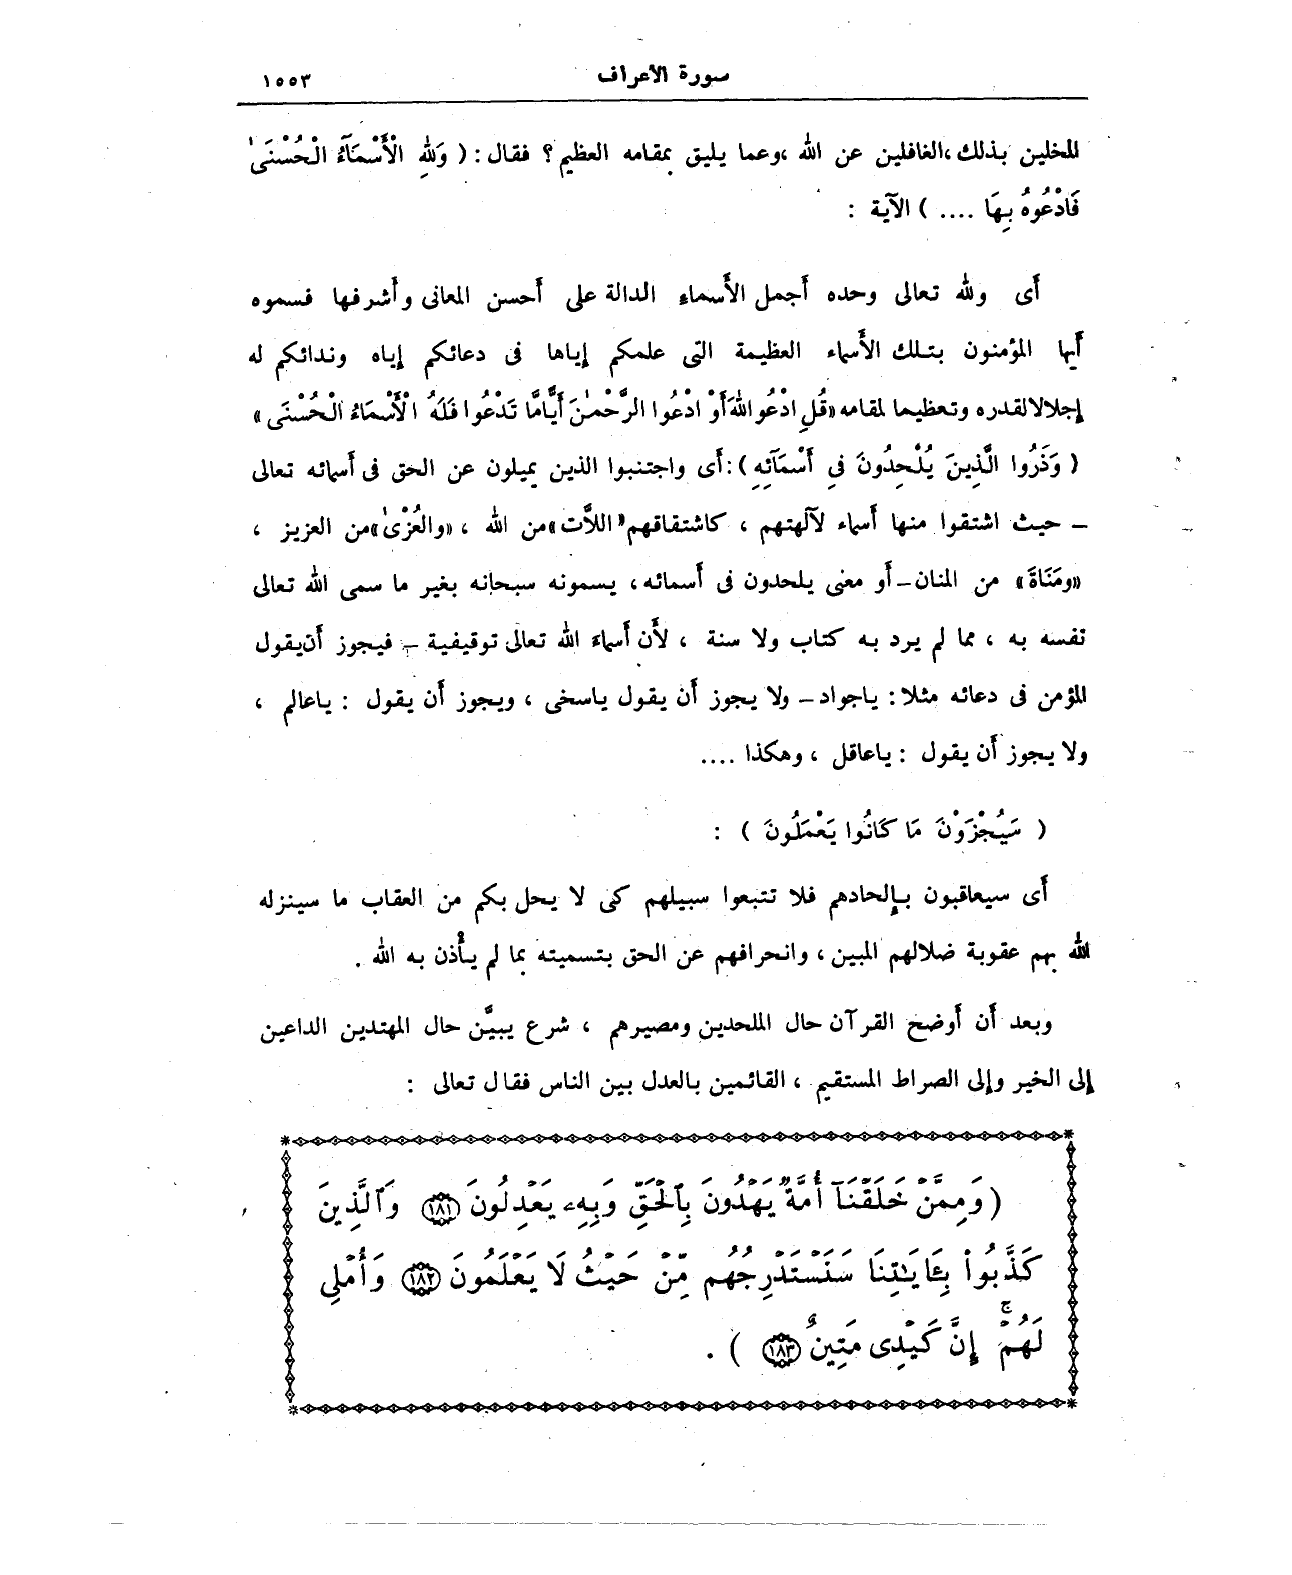 سورة الأعراف ١٥٥٣
المخلين بذلك ،الغافلين عن الله ،وعما يليق بمقامه العظيم ؟ فقال : ( وَلِلهِ الْأَسْمَآءُ الْحُسْنَىٰ
فَادْعُوهُ بِهَا .... ) الآية :
أَى ولله تعالى وحده أَجمل الأَسماء الدالة على أَحسن المعانى وأَشرفها فسموه
أَيها المؤمنون بتلك الأَسماء العظيمة التى علمكم إياها فى دعائكم إياه وندائكم له
إجلالا لقدره وتعظيما لمقامه «قُلِ ادْعُوا اللهَ أَوْ ادْعُوا الرَّحْمٰنَ أَيًّامَّا تَدْعُوا فَلَهُ الْأَسْمَاءُ الْحُسْنَى»
( وَذَرُوا الَّذِينَ يُلْحِدُونَ فِى أَسْمَآئِهِ ) : أَى واجتنبوا الذين يميلون عن الحق فى أَسمائه تعالى
– حيث اشتقوا منها أَسماء لآلهتهم ، كاشتقاقهم «اللاَّت» من الله ، «والعُزْىٰ» من العزيز ،
«ومَنَاةَ» من المنان – أَو معنى يلحدون فى أَسمائه ، يسمونه سبحانه بغير ما سمى الله تعالى
نفسه به ، مما لم يرد به كتاب ولا سنة ، لأَن أَسماءَ الله تعالى توقيفية – فيجوز أَن يقول
المؤمن فى دعائه مثلا : ياجواد – ولا يجوز أَن يقول ياسخى ، ويجوز أَن يقول : ياعالم ،
ولا يجوز أَن يقول : ياعاقل ، وهكذا ....
( سَيُجْزَوْنَ مَا كَانُوا يَعْمَلُونَ ) :
أَى سيعاقبون بإلحادهم فلا تتبعوا سبيلهم كى لا يحل بكم من العقاب ما سينزله
الله بهم عقوبة ضلالهم المبين ، وانحرافهم عن الحق بتسميته بما لم يأْذن به الله .
وبعد أَن أَوضح القرآن حال الملحدين ومصيرهم ، شرع يبيَّن حال المهتدين الداعين
إلى الخير وإلى الصراط المستقيم ، القائمين بالعدل بين الناس فقال تعالى :
(وَمِمَّنْ خَلَقْنَآ أُمَّةٌ يَهْدُونَ بِٱلْحَقِّ وَبِهِۦ يَعْدِلُونَ ۝١٨١ وَٱلَّذِينَ
كَذَّبُوا۟ بِـَٔايَـٰتِنَا سَنَسْتَدْرِجُهُم مِّنْ حَيْثُ لَا يَعْلَمُونَ ۝١٨٢ وَأُمْلِى
لَهُمْ ۚ إِنَّ كَيْدِى مَتِينٌ ۝١٨٣ ) .